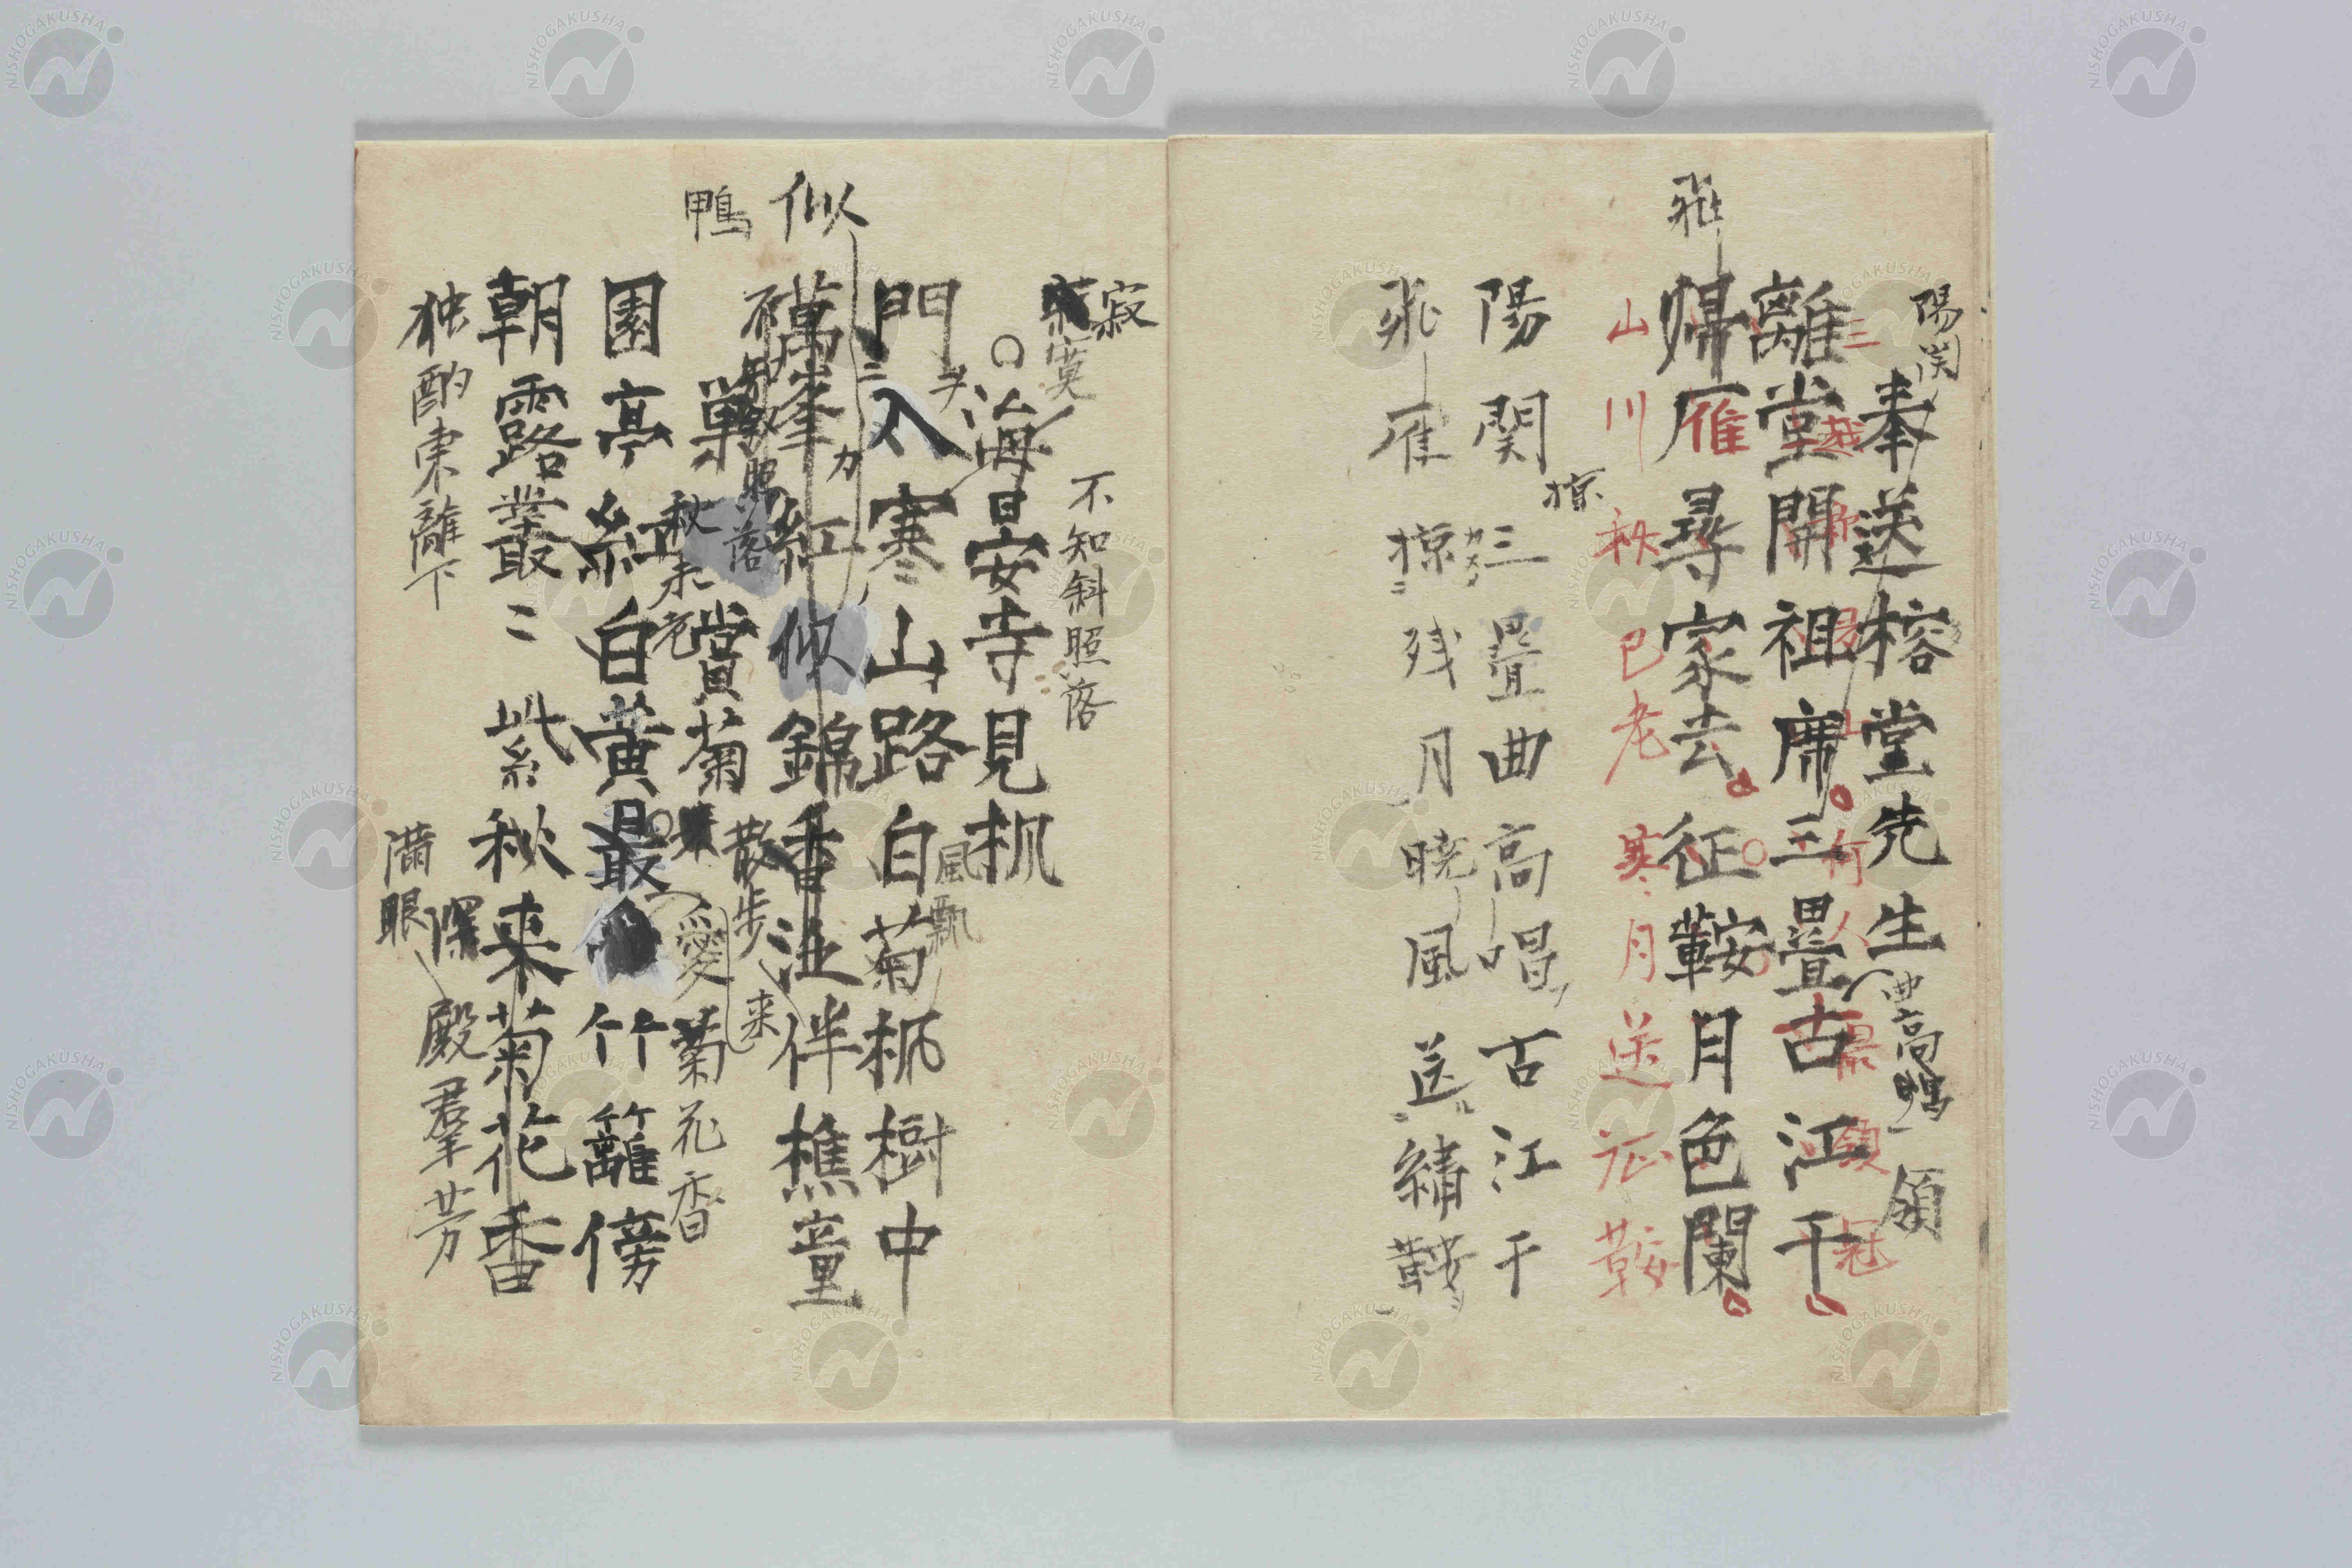 陽関
奉送榕堂先生
曲高鳴
領
離堂開祖席三畳古江干
三
何人
領
冠
飛
帰雁尋家去征鞍月色闌
山川秋巴老寒月送征鞍
掠
陽関三畳曲高唱古江干
飛雁掠残月暁風送繡鞍
寂
寞
不知斜照落
海晏寺見枫
門入寒山路白菊枫樹中
風飄
似
萬峯紅似錦香迣伴樵童
力
不知斜照落
散歩
来
鴨
巣
賞菊
秋未老
愛菊花香
園亭紅白黄最
竹籬傍
朝露叢〻紫秋来菊花香
独酌東離下
深
満眼殿羣芳
NISHOGAKUSHA